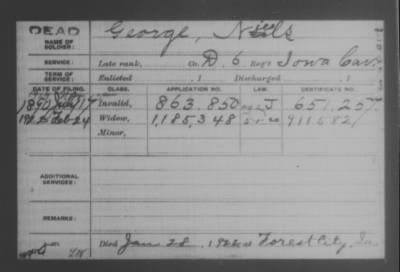 DEAD
George, Nels
NAME OF SOLDIER:
SERVICE: Late rank, Co. D, 6 Reg't Iowa Cav.
TERM OF SERVICE: Enlisted , 1 Discharged , 1
DATE OF FILING. CLASS. APPLICATION NO. LAW. CERTIFICATE NO.
1890 July 17 Invalid, 863.850 651,257
1922 Feb 24 Widow, 1,185,348 911582
Minor,
ADDITIONAL SERVICES:
REMARKS:
Died Jan 28, 1922 at Forest City, Ia